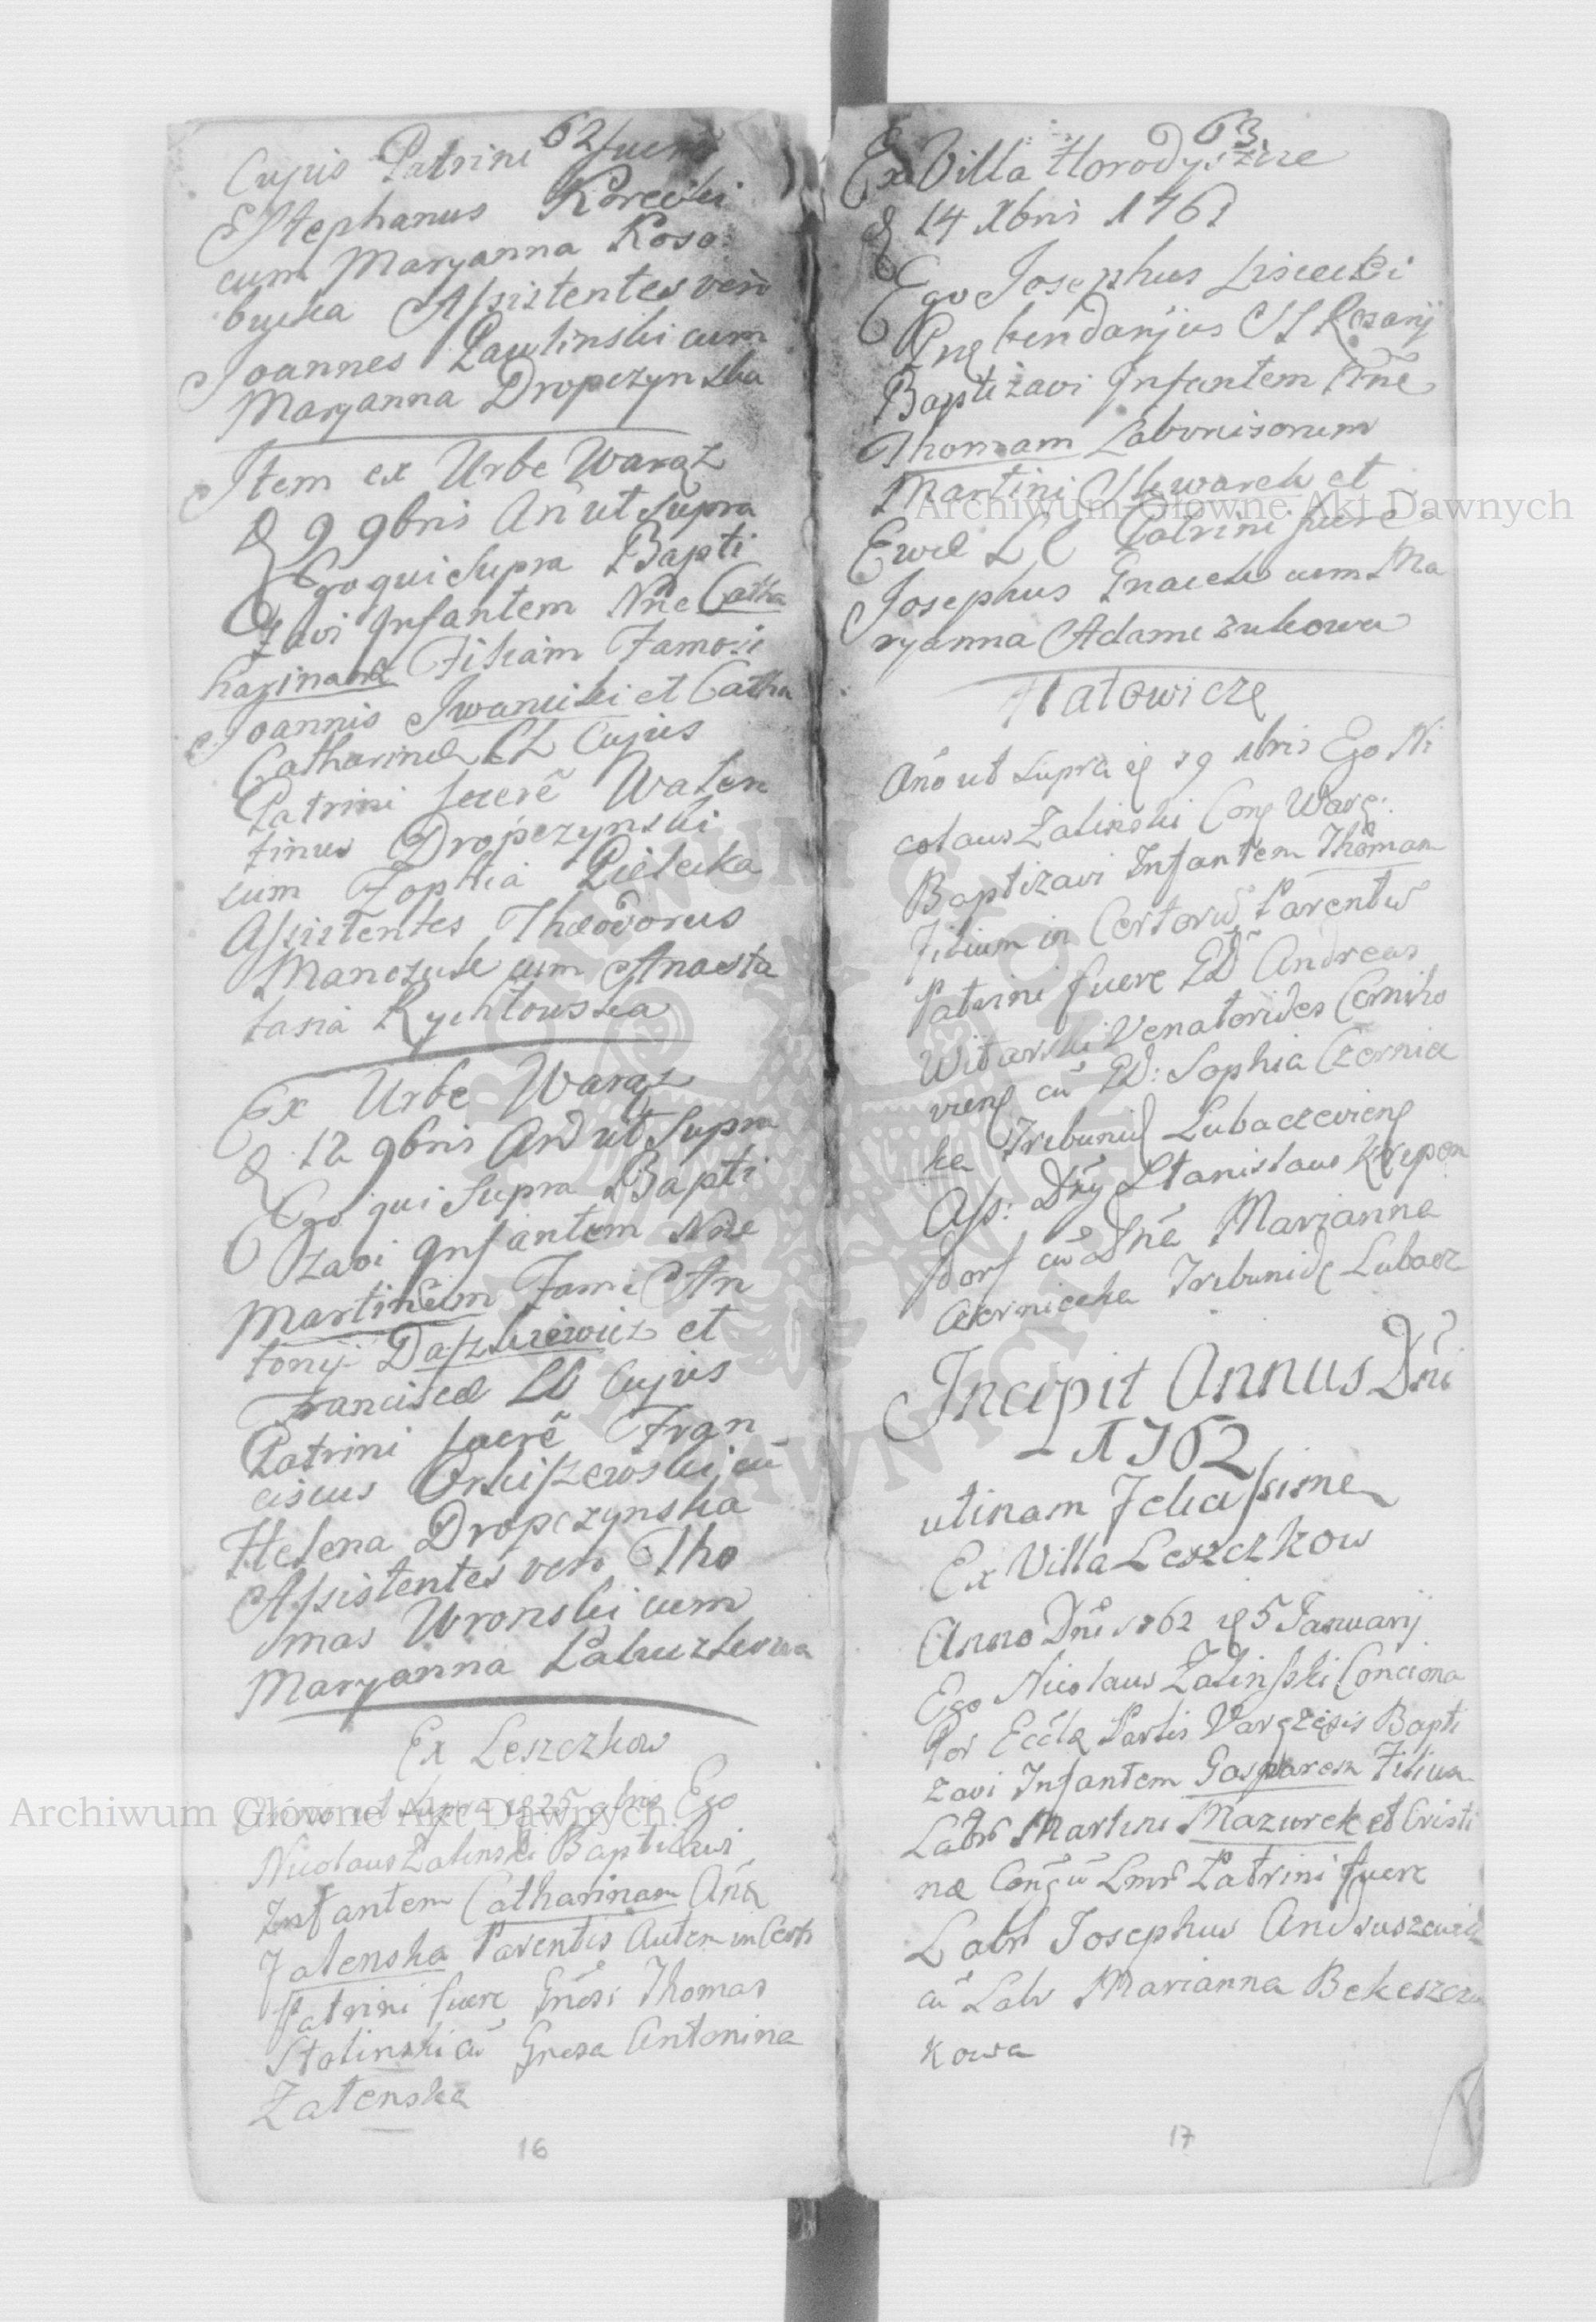 62
Cujus Patrini fuere
Stephanus Korecki
cum Maryanna Koso
bucka Assistentes vero
Joannes Pawlinski cum
Maryanna Dropczynska
Item ex Urbe Waręz
9 9bris An ut Supra
Ego qui Supra Bapti
zavi Infantem Nne Catha
harinam Filiam Famosi
Joannis Iwanicki et Catha
Catharinæ LC Cujus
Patrini fuerẽ Walen
tinus Dropczynski
cum Zophia Pielecka
Assistentes Theodorus
Manczuk cum Anasta
tasia Rychtowska
Ex Urbe Waręz
12 9bris Ano ut Supra
Ego qui Supra Bapti
zavi Infantem Nne
Martinum Fami An
tonij Daszkiewicz et
Franciscæ LC Cujus
Patrini fuerẽ Fran
ciscus Orkiszewski cũ
Helena Dropczynska
Assistentes vero Tho
mas Wronski cum
Maryanna
Ex Leszczkow
Anno ut Supra 25 9bris Ego
Nicolaus Zalinski Baptizavi
Infantem Catharinam
Zalenska Parentis Autem in Certi
Patrini fuere Gnosi Thomas
Stolinski cũ Gnosa Antonina
Zalenska
16
63
Ex Villa Horodyszcze
14 Xbris 1761
Ego Josephus Lisiecki
Præbendarjus SS Rosarij
Baptizavi Infantem Nne
Thomam Laboriosorum
Martini Skwarek et
Ewæ LC Patrini fuere
Josephus Gnacek cum Ma
ryanna Adamczukowa
Matowicze
Ano ut supra 29 Xbris Ego Ni
colaus Zalinski Con Waręz
Baptizavi Infantem Thomam
Filium in Certorũ Parentũ
Patrini fuere GD Andreas
Witarski Venatorides Cerniho
viens cũ GD: Sophia Czernic
ka Tribunid Lubaczeviens
Ass: Dnj Stanislaus Krepen
dorf cũ Dna Marianna
Czernicka Tribunide Lubacz
Incipit Annus Dni
1762
utinam Felicissime
Ex Villa Leszczkow
Anno Dni 1762 5 Januarij
Ego Nicolaus Zalinski Conciona
tor Ecclæ Partis Varęzesis Bapti
zavi Infantem Gasparem Filium
Labr Martini Mazurek et Cristi
næ Patrini fuere
Labr Josephus Andruszewicz
cũ Labr Marianna Bekeszczu
kowa
17
Archiwum Główne Akt Dawnych
Archiwum Główne Akt Dawnych
ARCHIWUM GŁÓWNE AKT DAWNYCH